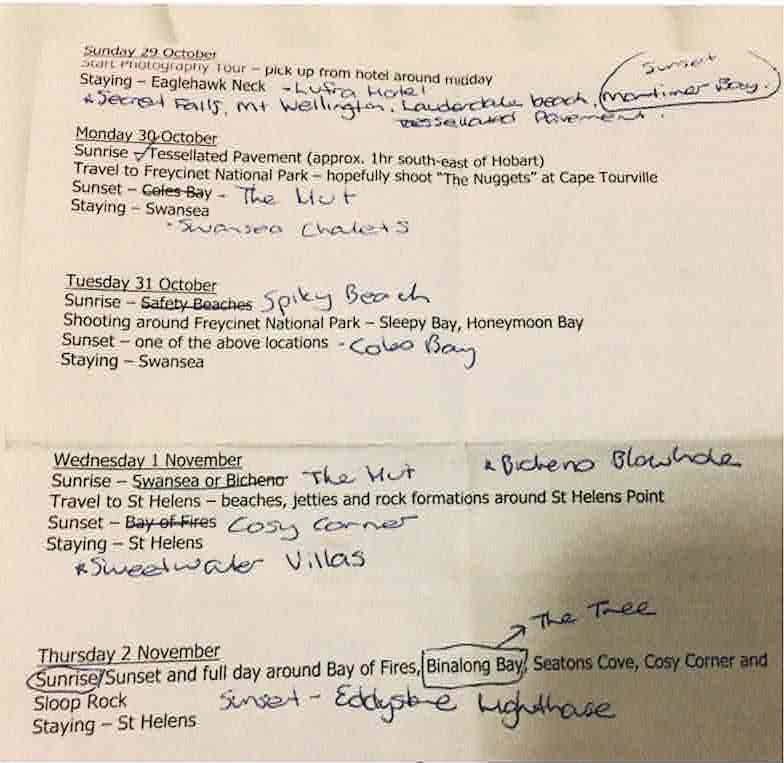 Sunday 29 October
Start Photography Tour – pick up from hotel around midday
Staying – Eaglehawk Neck - Lufra Hotel
* Secret Falls, Mt Wellington, Lauderdale beach, Sunset Mortimer Bay.
Tessellated Pavement.
Monday 30 October
Sunrise – Tessellated Pavement (approx. 1hr south-east of Hobart)
Travel to Freycinet National Park – hopefully shoot "The Nuggets" at Cape Tourville
Sunset – Coles Bay - The Hut
Staying – Swansea
- Swansea Chalets
Tuesday 31 October
Sunrise – Safety Beaches Spiky Beach
Shooting around Freycinet National Park – Sleepy Bay, Honeymoon Bay
Sunset – one of the above locations - Coles Bay
Staying – Swansea
Wednesday 1 November
Sunrise – Swansea or Bicheno The Hut * Bicheno Blowhole
Travel to St Helens – beaches, jetties and rock formations around St Helens Point
Sunset – Bay of Fires Cosy Corner
Staying – St Helens
* Sweetwater Villas
The Tree
Thursday 2 November
Sunrise/Sunset and full day around Bay of Fires, Binalong Bay, Seatons Cove, Cosy Corner and
Sloop Rock Sunset - Eddystone Lighthouse
Staying – St Helens